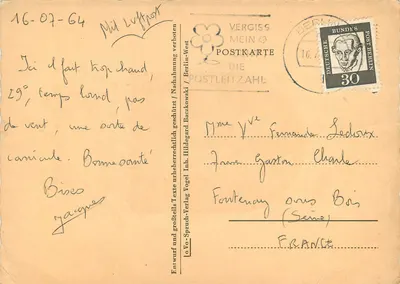 16-07-64
Mit Luftpost
Ici il fait trop chaud,
29°, temps lourd, pas
de vent, une sorte de
canicule. Bonne santé
Bises
Jacques
Entwurf und großteils Texte urheberrechtlich geschützt / Nachahmung verboten
Lo Vo-Spruch-Verlag Vogel Inh. Hildegard Barakowski / Berlin-West
VERGISS
MEIN
NICHT
DIE
POSTLEITZAHL
POSTKARTE
BERLIN
16.
DEUTSCHE BUNDESPOST BERLIN
30
Mme Vve Fernandez Ledoux
Gaston Charle
Fontenay sous Bois
(Seine)
FRANCE